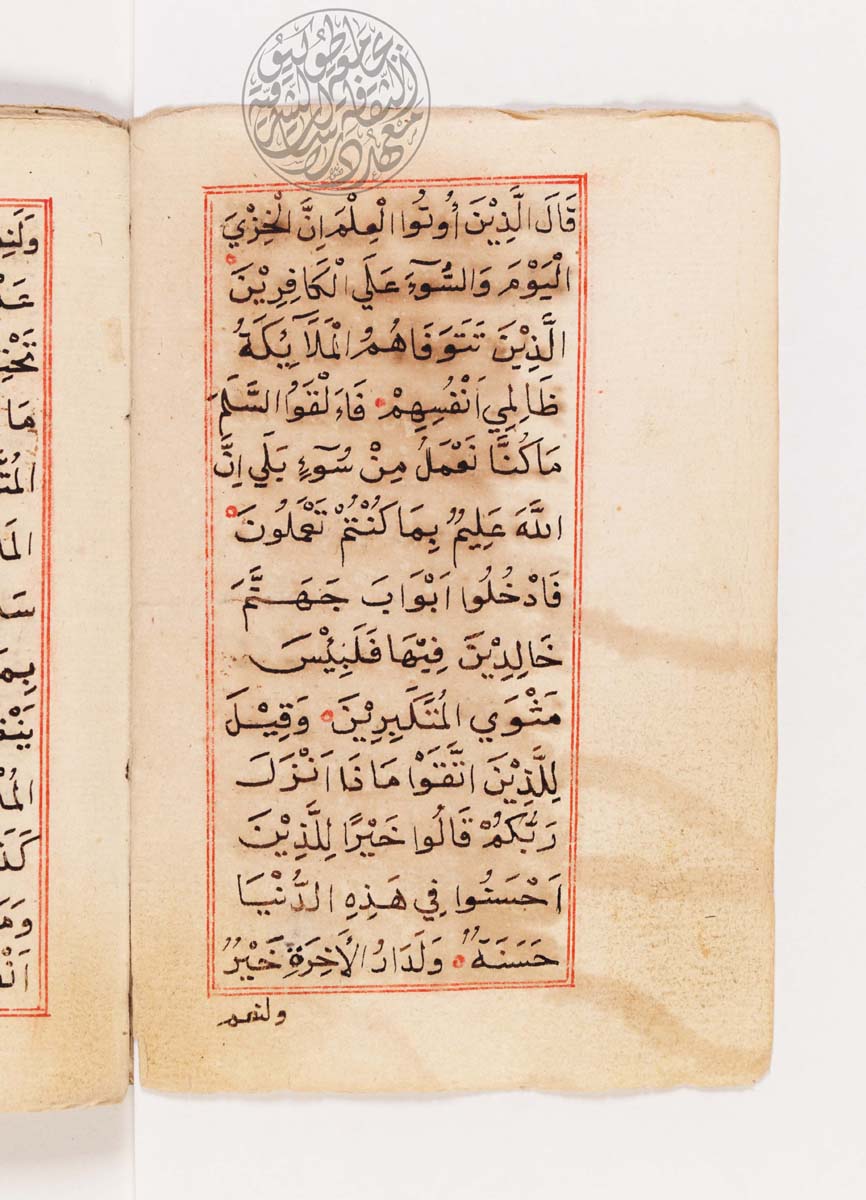 قَالَ الَّذِيْنَ أُوتُوا الْعِلْمَ اِنَّ الْخِزْيَ
الْيَوْمَ وَالسُّوٓءَ عَلَي الْكَافِرِيْنَ
الَّذِيْنَ تَتَوَفَاهُمُ الْمَلَآئِكَةُ
ظَالِمِي اَنْفُسِهِمْ فَاَلْقَوُا السَّلَمَ
مَا كُنَّا نَعْمَلُ مِنْ سُوٓءٍ بَلَي اِنَّ
اللَّهَ عَلِيمٌ بِمَا كُنْتُمْ تَعْمَلُونَ
فَادْخُلُوا اَبْوَابَ جَهَنَّمَ
خَالِدِيْنَ فِيْهَا فَلَبِئْسَ
مَثْوَي الْمُتَكَبِرِيْنَ وَقِيْلَ
لِلَّذِيْنَ اتَّقَوْا مَاذَا اَنْزَلَ
رَبُّكُمْ قَالُوا خَيْرًا لِلَّذِيْنَ
اَحْسَنُوا فِي هَذِهِ الدُّنْيَا
حَسَنَةٌ وَلَدَارُ الْأَخِرَةِ خَيْرٌ
ولنعم